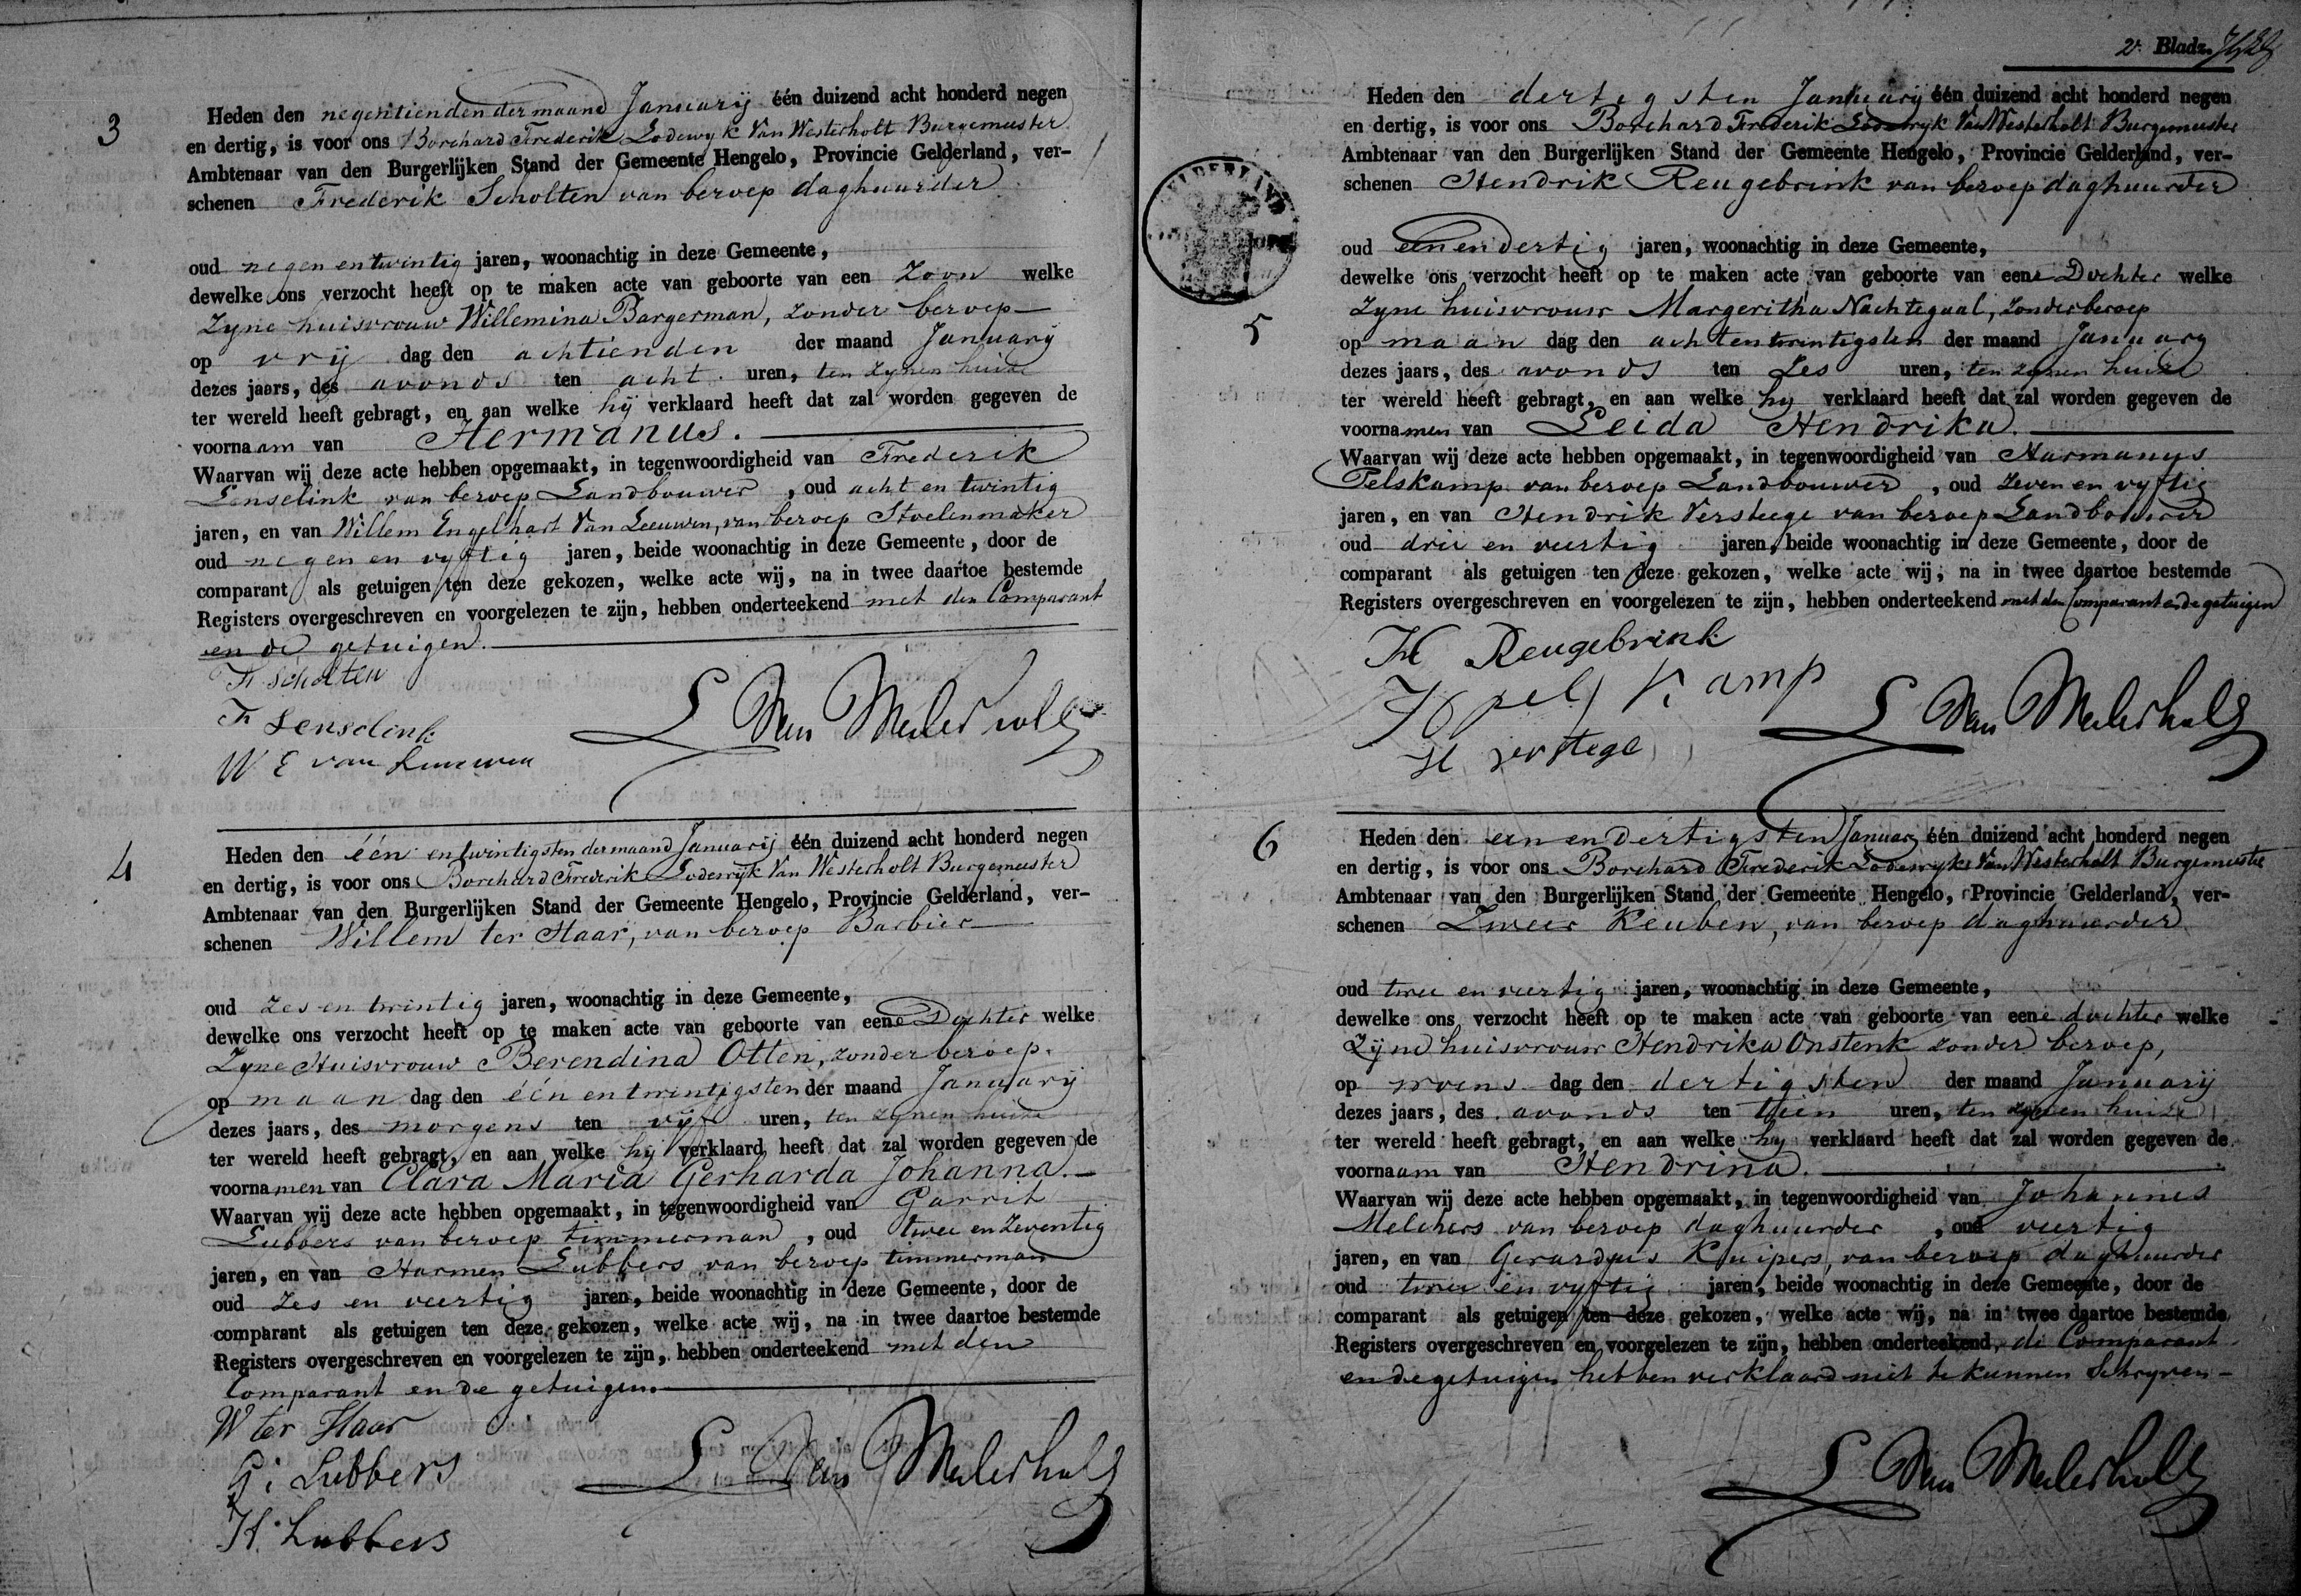 3
Heden den negentienden der maand Januarij één duizend acht honderd negen
en dertig, is voor ons Borchard Frederik Lodewyk Van Westerholt Burgemeester
Ambtenaar van den Burgerlijken Stand der Gemeente Hengelo, Provincie Gelderland, ver-
schenen Frederik Scholten van beroep daghuurder
oud negen en twintig jaren, woonachtig in deze Gemeente,
dewelke ons verzocht heeft op te maken acte van geboorte van een Zoon welke
Zyne huisvrouw Willemina Bargerman, zonder beroep
op vrij dag den achtienden der maand January
dezes jaars, des avonds ten acht uren, ten zynen huize
ter wereld heeft gebragt, en aan welke hij verklaard heeft dat zal worden gegeven de
voornaam van Hermanus.
Waarvan wij deze acte hebben opgemaakt, in tegenwoordigheid van Frederik
Lenselink van beroep Landbouwer, oud acht en twintig
jaren, en van Willem Engelhart Van Leeuwen, van beroep Stoelenmaker
oud negen en vyftig jaren, beide woonachtig in deze Gemeente, door de
comparant als getuigen ten deze gekozen, welke acte wij, na in twee daartoe bestemde
Registers overgeschreven en voorgelezen te zijn, hebben onderteekend met den Comparant
en de getuigen.
F Scholten
F Lenselink
W E van Leuwen
L Van Westerholt
4
Heden den één en twintigsten der maand Januarij één duizend acht honderd negen
en dertig, is voor ons Borchard Frederik Lodewyk Van Westerholt Burgemeester
Ambtenaar van den Burgerlijken Stand der Gemeente Hengelo, Provincie Gelderland, ver-
schenen Willem ter Haar, van beroep Barbier
oud zes en twintig jaren, woonachtig in deze Gemeente,
dewelke ons verzocht heeft op te maken acte van geboorte van eene Dochter welke
Zyne Huisvrouw Berendina Otten, zonder beroep.
op maan dag den één en twintigsten der maand Januarij
dezes jaars, des morgens ten vijf uren, ten zynen huize
ter wereld heeft gebragt, en aan welke hij verklaard heeft dat zal worden gegeven de
voornamen van Clara Maria Gerharda Johanna.
Waarvan wij deze acte hebben opgemaakt, in tegenwoordigheid van Garrit
Lubbers van beroep timmerman, oud twee en zeventig
jaren, en van Harmen Lubbers van beroep timmerman
oud zes en veertig jaren, beide woonachtig in deze Gemeente, door de
comparant als getuigen ten deze gekozen, welke acte wij, na in twee daartoe bestemde
Registers overgeschreven en voorgelezen te zijn, hebben onderteekend met den
Comparant en de getuigen.
W ter Haar
G: Lubbers
H. Lubbers
L Van Westerholt
2e Bladz.
GELDERLAND
5
Heden den dertigsten January één duizend acht honderd negen
en dertig, is voor ons Borchard Frederik Lodewyk Van Westerholt Burgemeester
Ambtenaar van den Burgerlijken Stand der Gemeente Hengelo, Provincie Gelderland, ver-
schenen Hendrik Reugebrink van beroep daghuurder
oud een en dertig jaren, woonachtig in deze Gemeente,
dewelke ons verzocht heeft op te maken acte van geboorte van eene Dochter welke
Zyne huisvrouw Margeritha Nachtegaal, zonder beroep
op maan dag den achtentwintigsten der maand January
dezes jaars, des avonds ten zes uren, ten zynen huize
ter wereld heeft gebragt, en aan welke hy verklaard heeft dat zal worden gegeven de
voornamen van Leida Hendrika.
Waarvan wij deze acte hebben opgemaakt, in tegenwoordigheid van Harmanus
Pelskamp van beroep Landbouwer, oud zeven en vyftig
jaren, en van Hendrik Versteege van beroep Landbouwer
oud drie en veertig jaren, beide woonachtig in deze Gemeente, door de
comparant als getuigen ten deze gekozen, welke acte wij, na in twee daartoe bestemde
Registers overgeschreven en voorgelezen te zijn, hebben onderteekend met den Comparant en de getuigen
H Reugebrink
H pelskamp
H verstege
L Van Westerholt
6
Heden den een en dertigsten January één duizend acht honderd negen
en dertig, is voor ons Borchard Frederik Lodewyk Van Westerholt Burgemeester
Ambtenaar van den Burgerlijken Stand der Gemeente Hengelo, Provincie Gelderland, ver-
schenen Zweer Keuben, van beroep daghuurder
oud twee en veertig jaren, woonachtig in deze Gemeente,
dewelke ons verzocht heeft op te maken acte van geboorte van eene dochter welke
Zijne huisvrouw Hendrika Onstenk zonder beroep,
op woens dag den dertigsten der maand Januarij
dezes jaars, des avonds ten tien uren, ten zynen huize
ter wereld heeft gebragt, en aan welke hy verklaard heeft dat zal worden gegeven de
voornaam van Hendrina.
Waarvan wij deze acte hebben opgemaakt, in tegenwoordigheid van Johannes
Melchers van beroep daghuurder, oud veertig
jaren, en van Gerardus Kuipers, van beroep daghuurder
oud twee en vyftig jaren, beide woonachtig in deze Gemeente, door de
comparant als getuigen ten deze gekozen, welke acte wij, na in twee daartoe bestemde
Registers overgeschreven en voorgelezen te zijn, hebben onderteekend, de Comparant
en de getuigen hebben verklaard niet te kunnen Schryven
L Van Westerholt